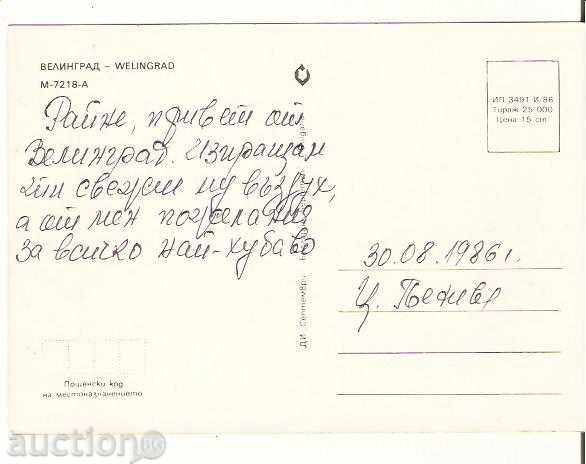 ВЕЛИНГРАД – WELINGRAD
М-7218-А
Райне, привет от
Велинград. Изпращам
ти свежия му въздух,
а от мен пожелания
за всичко най-хубаво
ИП 3491 И/86
Тираж 25 000
Цена 15 ст.
30.08.1986 г.
Ц.
ДИ Септември
Пощенски код
на местоназначението
auction BG